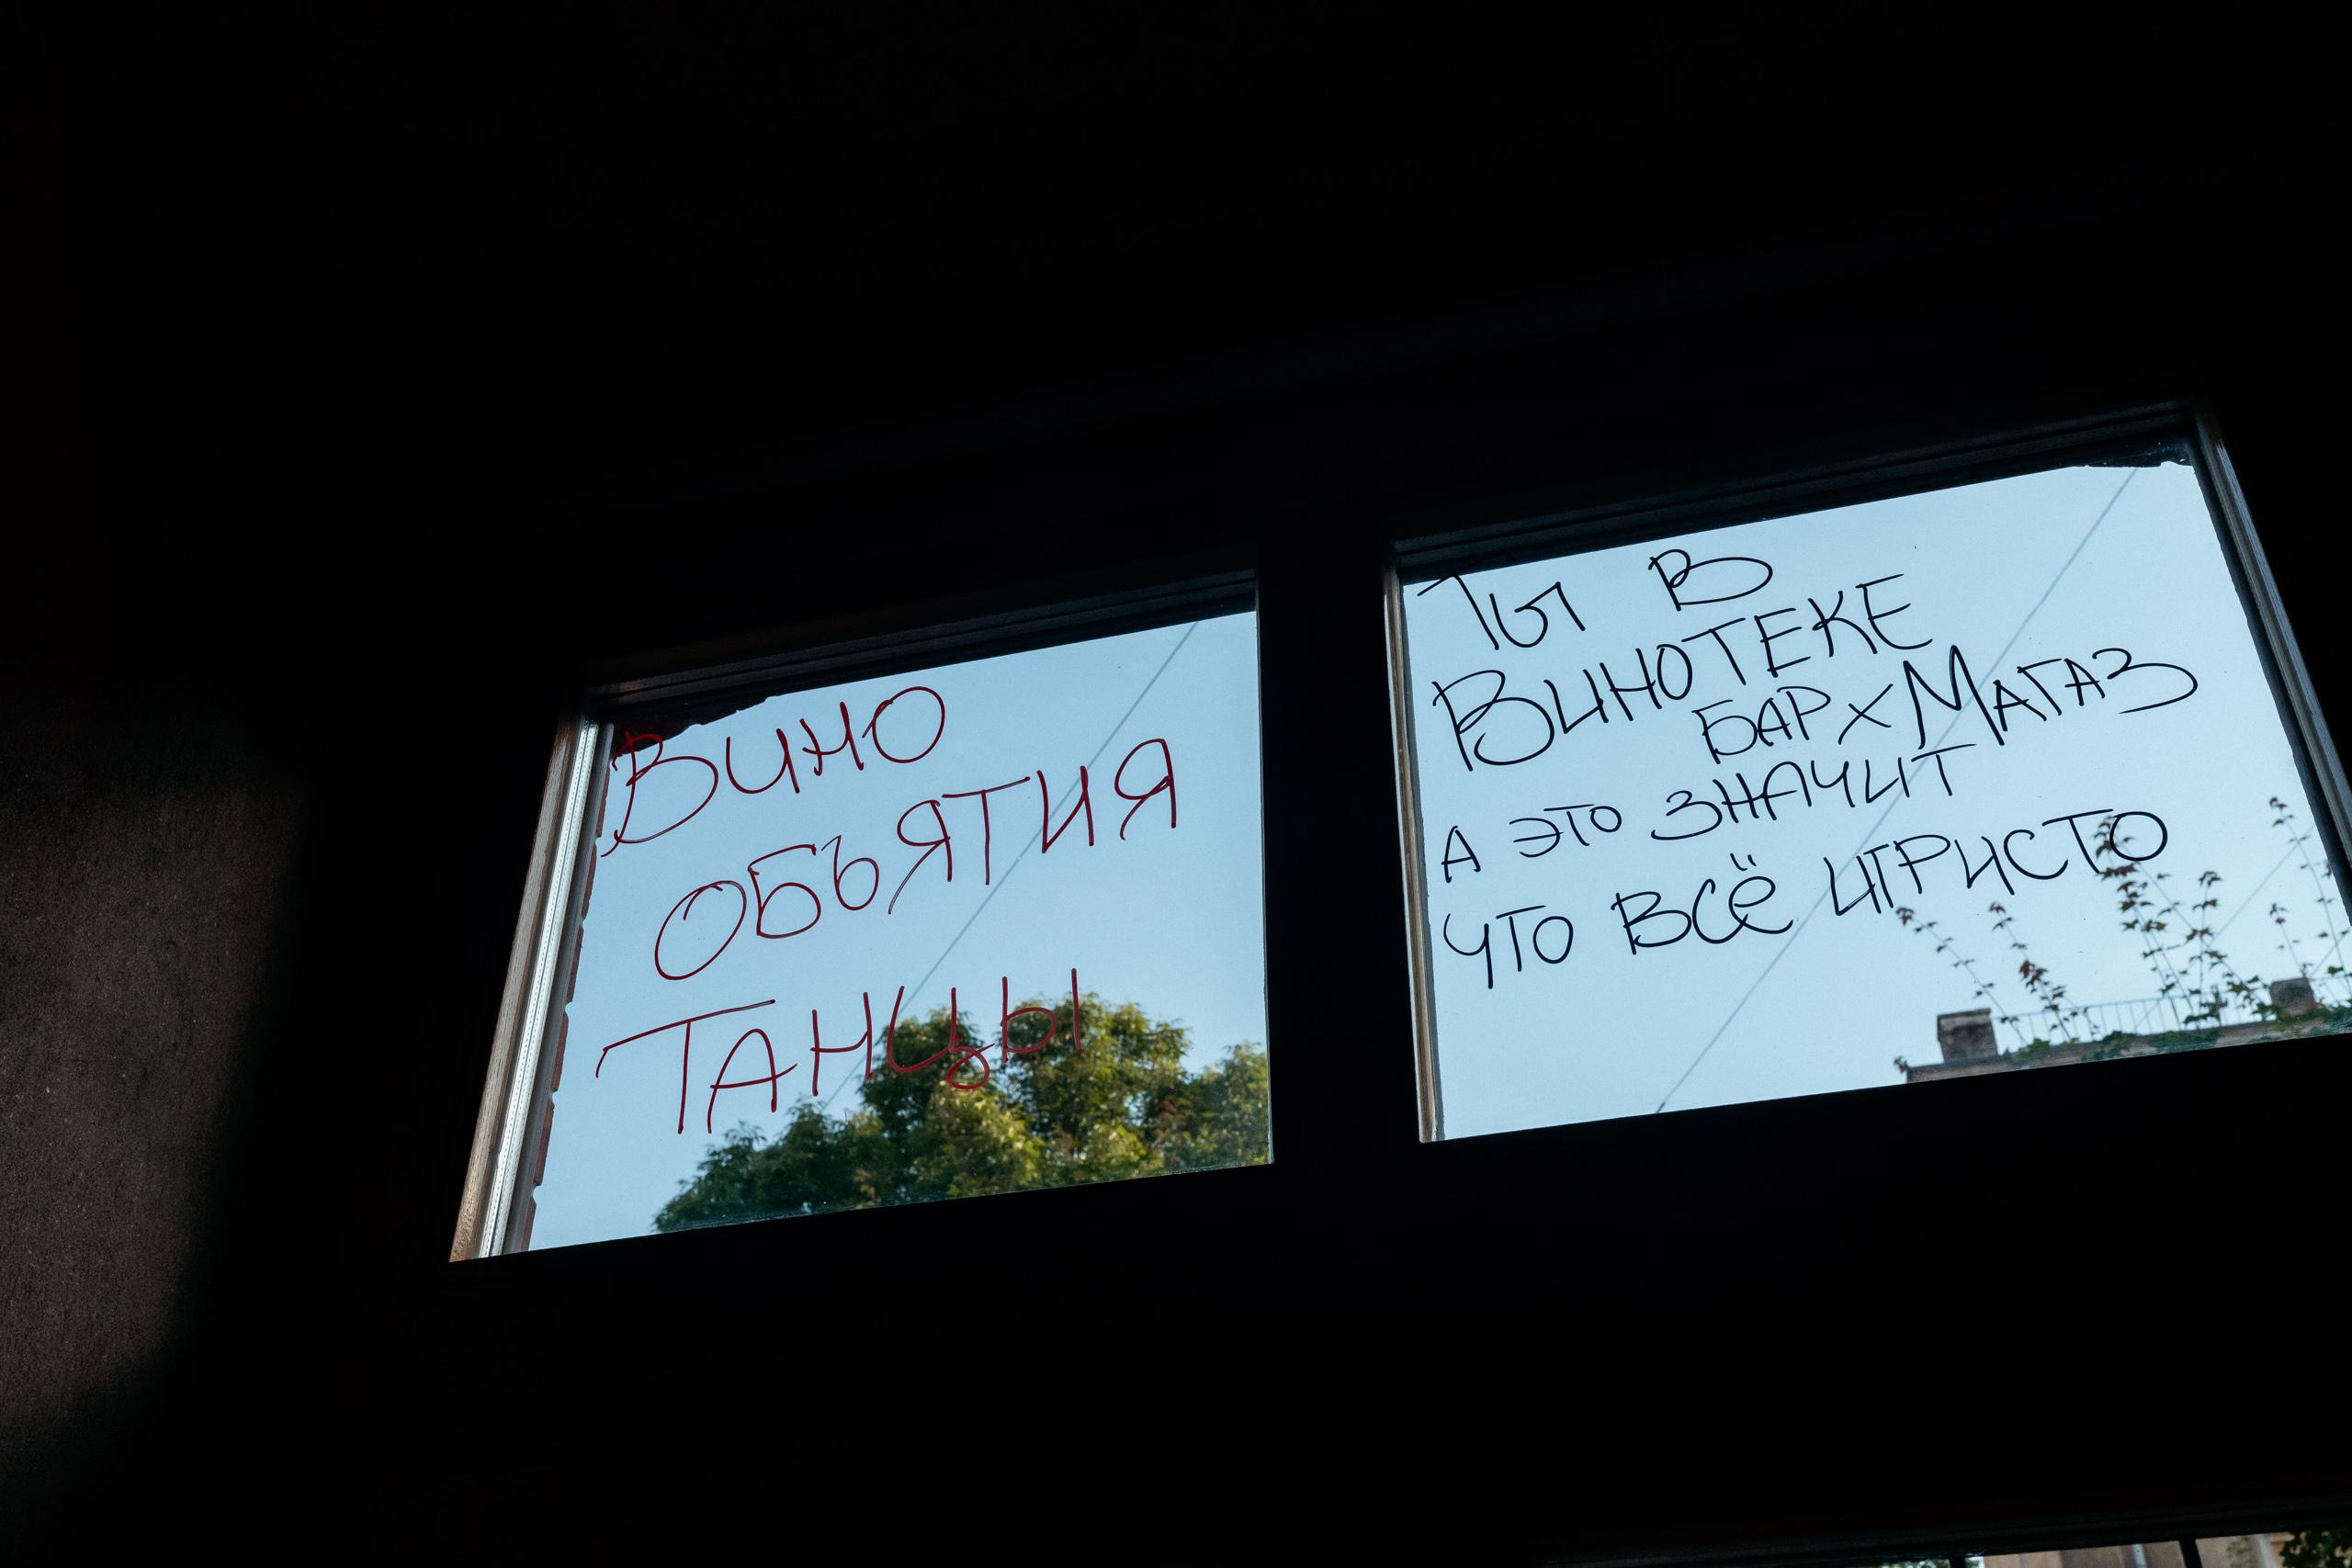 ВИНО
ОБЪЯТИЯ
ТАНЦЫ
ТЫ В
ВИНОТЕКЕ
БАР х МАГАЗ
А ЭТО ЗНАЧИТ
ЧТО ВСЁ ИГРИСТО